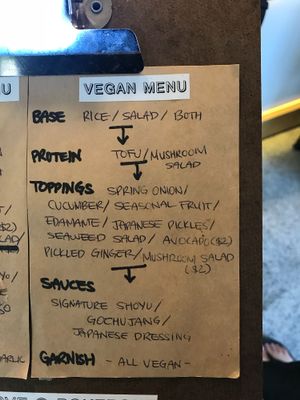 U
VEGAN MENU
BASE RICE/SALAD/BOTH
PROTEIN TOFU/MUSHROOM
SALAD
TOPPINGS SPRING ONION/
CUCUMBER/SEASONAL FRUIT/
EDAMANTE/JAPANESE PICKLES/
SEAWEED SALAD/AVOCADO($2)
PICKLED GINGER/MUSHROOM SALAD
($2)
SAUCES
SIGNATURE SHOYU/
GOCHUJANG/
JAPANESE DRESSING
GARNISH - ALL VEGAN -